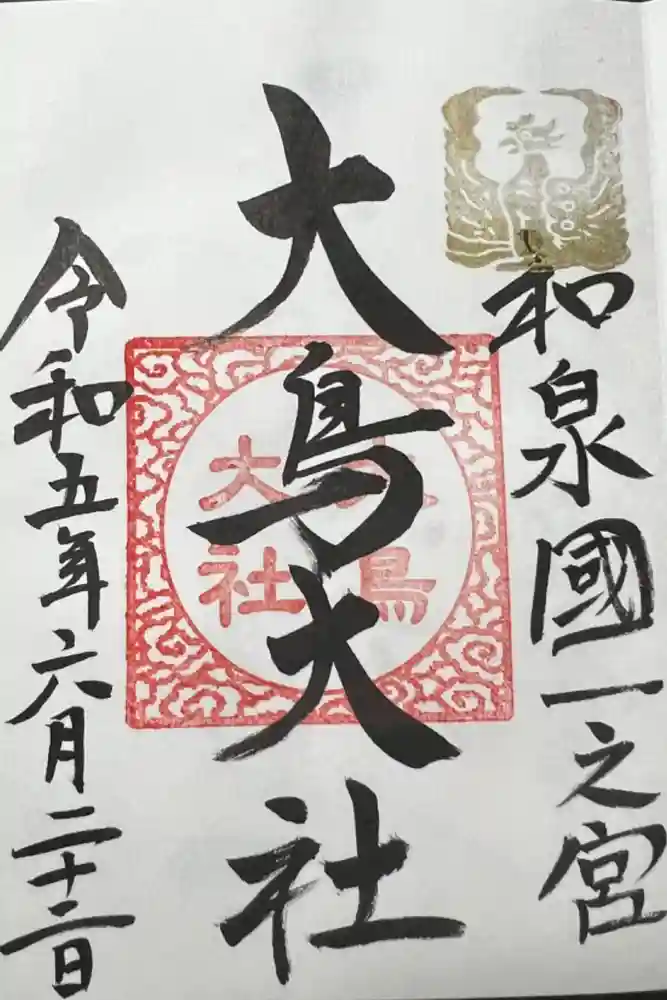 和泉國一之宮
大鳥大社
大鳥
大社
令和五年六月二十二日